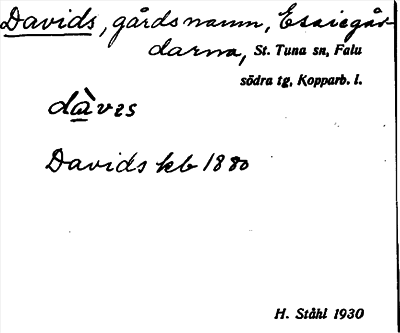 Davids, gårdsnamn, Esaiegår-
darna, St. Tuna sn, Falu
södra tg, Kopparb. l.
dàvɛs
Davids kb 1880
H. Ståhl 1930